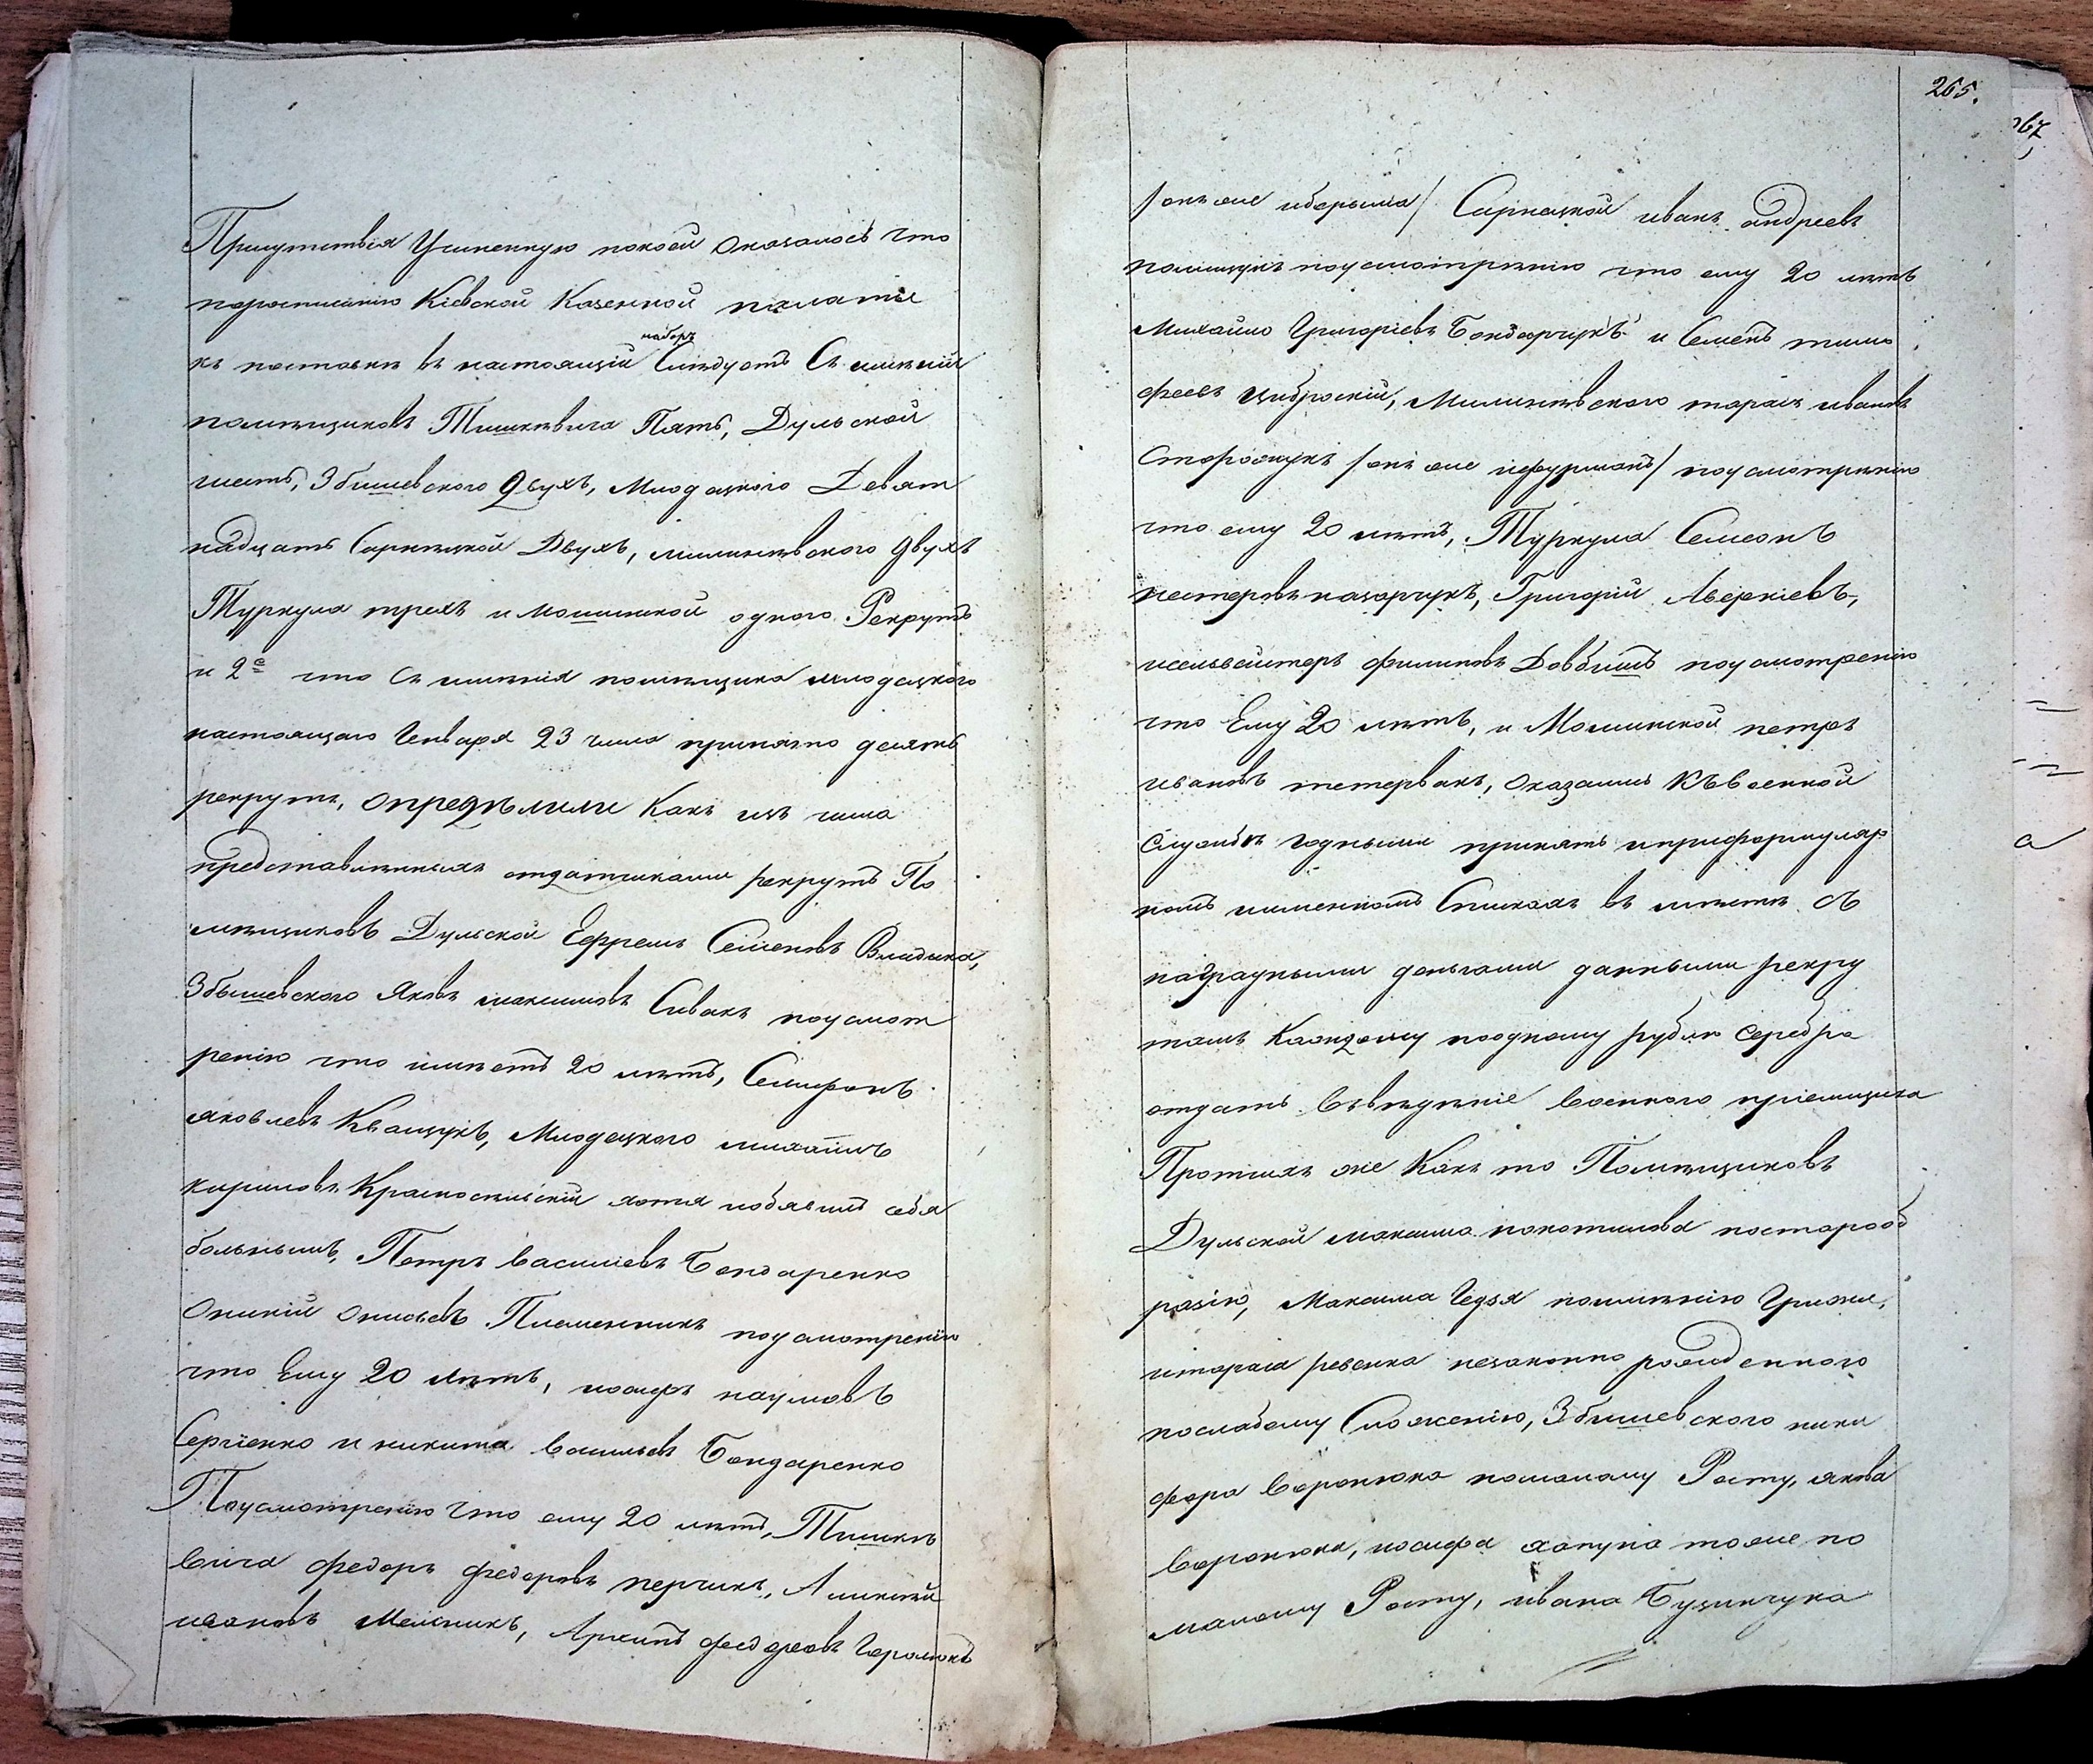 Присутствія Учиненную покоей оказалось что
порасписанію Кіевской Казенной палаты
набор
къ поставки въ настоящій Слѣдуетъ Съ имѣній
помѣщиковъ Тишкѣвича Пять, Дульской
шесть, Збышевского Двухъ, Млодецкого Девят
надцать Сарнецкой Двухъ, милинѣвского двухъ
Туркула трехъ и Мошинской одного Рекрутъ
и 2е что Съ имѣнія помѣщика млодецкого
настоящаго Генваря 23 числа принято десять
рекрутъ, опредѣлили Какъ изъ числа
представлѣнныхъ отдатчиками рекрутъ По
мѣщиковъ Дульской Ефремъ Семеновъ Владыка,
Збышевского Яковъ максимовъ Сивакъ поусмот
ренію что имѣетъ 20 лѣтъ, Семифонъ
яковлевъ Кващукъ, Млодецкого михаилъ
кириловъ Красносѣльскій хотя иобявилъ себя
больнымъ, Петръ Василіевъ Бондаренко
Оникій Онисіевъ Племенникъ поусмотренію
что Ему 20 лѣтъ, иосифъ наумовъ
Сергіенко и никита васильевъ Бондаренко
Поусмотренію что ему 20 лѣтъ, Тишкѣ
вича федоръ федоровъ перчикъ, Алиѣсей
ивановъ Мельникъ, Архипъ федоровъ Горолюкъ
265.
/онъ же иберыма/ Сарнецкой иванъ андреевъ
полищукъ поусмотрѣнію что ему 20 лѣтъ
Михайло Григоріевъ Бондарчукъ и Семенъ тимо
феевъ цибрскій, Милинѣвского тарасъ ивановъ
Сторожукъ /онъ же ифурманъ/ поусмотрѣнію
что ему 20 лѣтъ, Туркула Семеонъ
нестеровъ назарчукъ, Григорій Аверкіевъ,
исельвѣстеръ филиповъ Довбышъ поусмотренію
что Ему 20 лѣтъ, и Мошинской петръ
ивановъ тетервакъ, оказались Къвоенной
службѣ годными принять иприформуляр
номъ имменномъ Спискахъ въ мѣстѣ съ
наградными деньгами данными рекру
тамъ Каждому поодному рублю Серебра
отдать въвѣдѣніе военного пріемщика
Протчихъ же Какъ то Помѣщиковъ
Дульской максима покотилова постарооб
разію, Максима Чедзя поимѣнію Грыжи,
итараса ревенка незаконно рожденного
послабому Сложенію, Збышевского ники
фора Воронюка помалому Росту, якова
Воронюка, иосифа хапуна тоже по
малому Росту, ивана Бущинчука